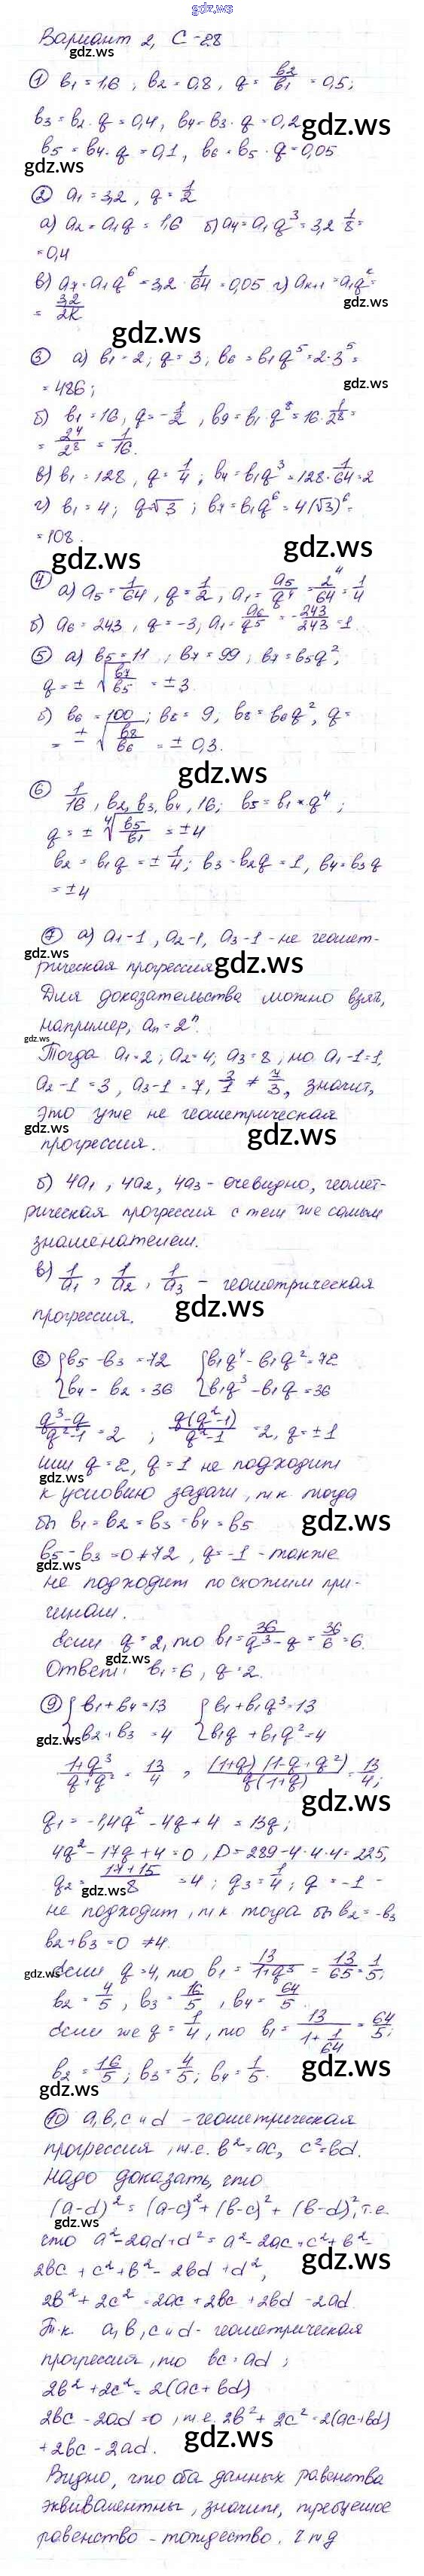 gdz.ws
Вариант 2, С-28
gdz.ws
① b₁=1,6; b₂=0,8, q = b₂/b₁ = 0,5;
b₃=b₂·q=0,4, b₄=b₃·q=0,2
gdz.ws
b₅=b₄·q=0,1, b₆=b₅·q=0,05
gdz.ws
② a₁=3,2, q=1/2
а) a₂=a₁q=1,6 б) a₄=a₁q³=3,2 1/8=
=0,4
в) a₇=a₁q⁶=3,2·1/64=0,05 г) aₖ₊₁=a₁qᵏ=
gdz.ws
= 3,2/2ᴷ
gdz.ws
③ а) b₁=2; q=3, b₆=b₁q⁵=2·3⁵=
gdz.ws
=486;
б) b₁=16, q=-1/2, b₉=b₁·q⁸=16·1/2⁸=
= 2⁴/2⁸ = 1/16.
в) b₁=128, q=1/4; b₄=b₁q³=128·1/64=2
г) b₁=4; q=√3; b₇=b₁q⁶=4(√3)⁶=
=108.
gdz.ws
gdz.ws
④ а) a₅=1/64, q=1/2, a₁=a₅/q⁴=2⁴/64=1/4
б) a₆=243, q=-3; a₁=a₆/q⁵=-243/243=1.
⑤ а) b₅=11, b₇=99; b₇=b₅q²,
q=±√b₇/b₅=±3.
б) b₆=100; b₈=9, b₈=b₆q², q=
=±√b₈/b₆=±0,3.
gdz.ws
⑥ 1/16, b₂, b₃, b₄, 16; b₅=b₁·q⁴;
q=±⁴√b₅/b₁=±4
b₂=b₁q=±1/4; b₃=b₂q=1, b₄=b₃q
=±4
⑦ а) a₁-1, a₂-1, a₃-1-не геомет-
gdz.ws
рическая прогрессия
gdz.ws
Для доказательства можно взять,
например, aₙ=2ⁿ.
gdz.ws
Тогда a₁=2; a₂=4; a₃=8, но a₁-1=1,
a₂-1=3, a₃-1=7, 3/1≠7/3, значит,
это уже не геометрическая
gdz.ws
gdz.ws
прогрессия.
б) 4a₁, 4a₂, 4a₃-очевидно, геомет-
рическая прогрессия с тем же самым
знаменателем.
в) 1/a₁, 1/a₂, 1/a₃ - геометрическая
gdz.ws
прогрессия.
⑧ {b₅-b₃=72 {b₁q⁴-b₁q²=72
{b₄-b₂=36 {b₁q³-b₁q=36
q³-q/q²-1=2; q(q²-1)/q²-1=2, q=±1
или q=2, q=1 не подходит
gdz.ws
к условию задачи, т.к тогда
бы b₁=b₂=b₃=b₄=b₅
gdz.ws
b₅-b₃=0≠72, q=-1-также
gdz.ws
не подходит по схожим при-
чинам.
Если q=2, то b₁=36/q³-q=36/6=6.
gdz.ws
Ответ: b₁=6, q=2.
⑨ {b₁+b₄=13 {b₁+b₁q³=13
gdz.ws
{b₂+b₃=4 {b₁q+b₁q²=4
1+q³/q+q²=13/4, (1+q)(1-q+q²)/q(1+q)=13/4;
gdz.ws
q₁=-1,4q²-4q+4=13q;
4q²-17q+4=0, D=289-4·4·4=225,
q₂=17+15/8=4; q₃=1/4; q=-1-
gdz.ws
не подходит, т.к тогда бы b₂=-b₃
b₂+b₃=0≠4.
gdz.ws
Если q=4, то b₁=13/1+q³=13/65=1/5;
b₂=4/5, b₃=16/5, b₄=64/5.
Если же q=1/4, то b₁=13/1+1/64=64/5;
b₂=16/5; b₃=4/5; b₄=1/5.
gdz.ws
gdz.ws
⑩ a,b,c и d -геометрическая
прогрессия, т.е. b²=ac, c²=bd.
Надо доказать, что
(a-d)²=(a-c)²+(b-c)²+(b-d)², т.е.
gdz.ws
что a²-2ad+d²=a²-2ac+c²+b²-
gdz.ws
2bc+c²+b²-2bd+d²,
2b²+2c²=2ac+2bc+2bd-2ad.
Т.к. a,b,c и d-геометрическая
прогрессия, то bc=ad;
2b²+2c²=2(ac+bd)
2bc-2ad=0, т.е. 2b²+2c²=2(ac+bd)
gdz.ws
+2bc-2ad.
Видно, что оба данных равенства
эквивалентны, значит, требуемое
равенство-тождество. ч.т.д